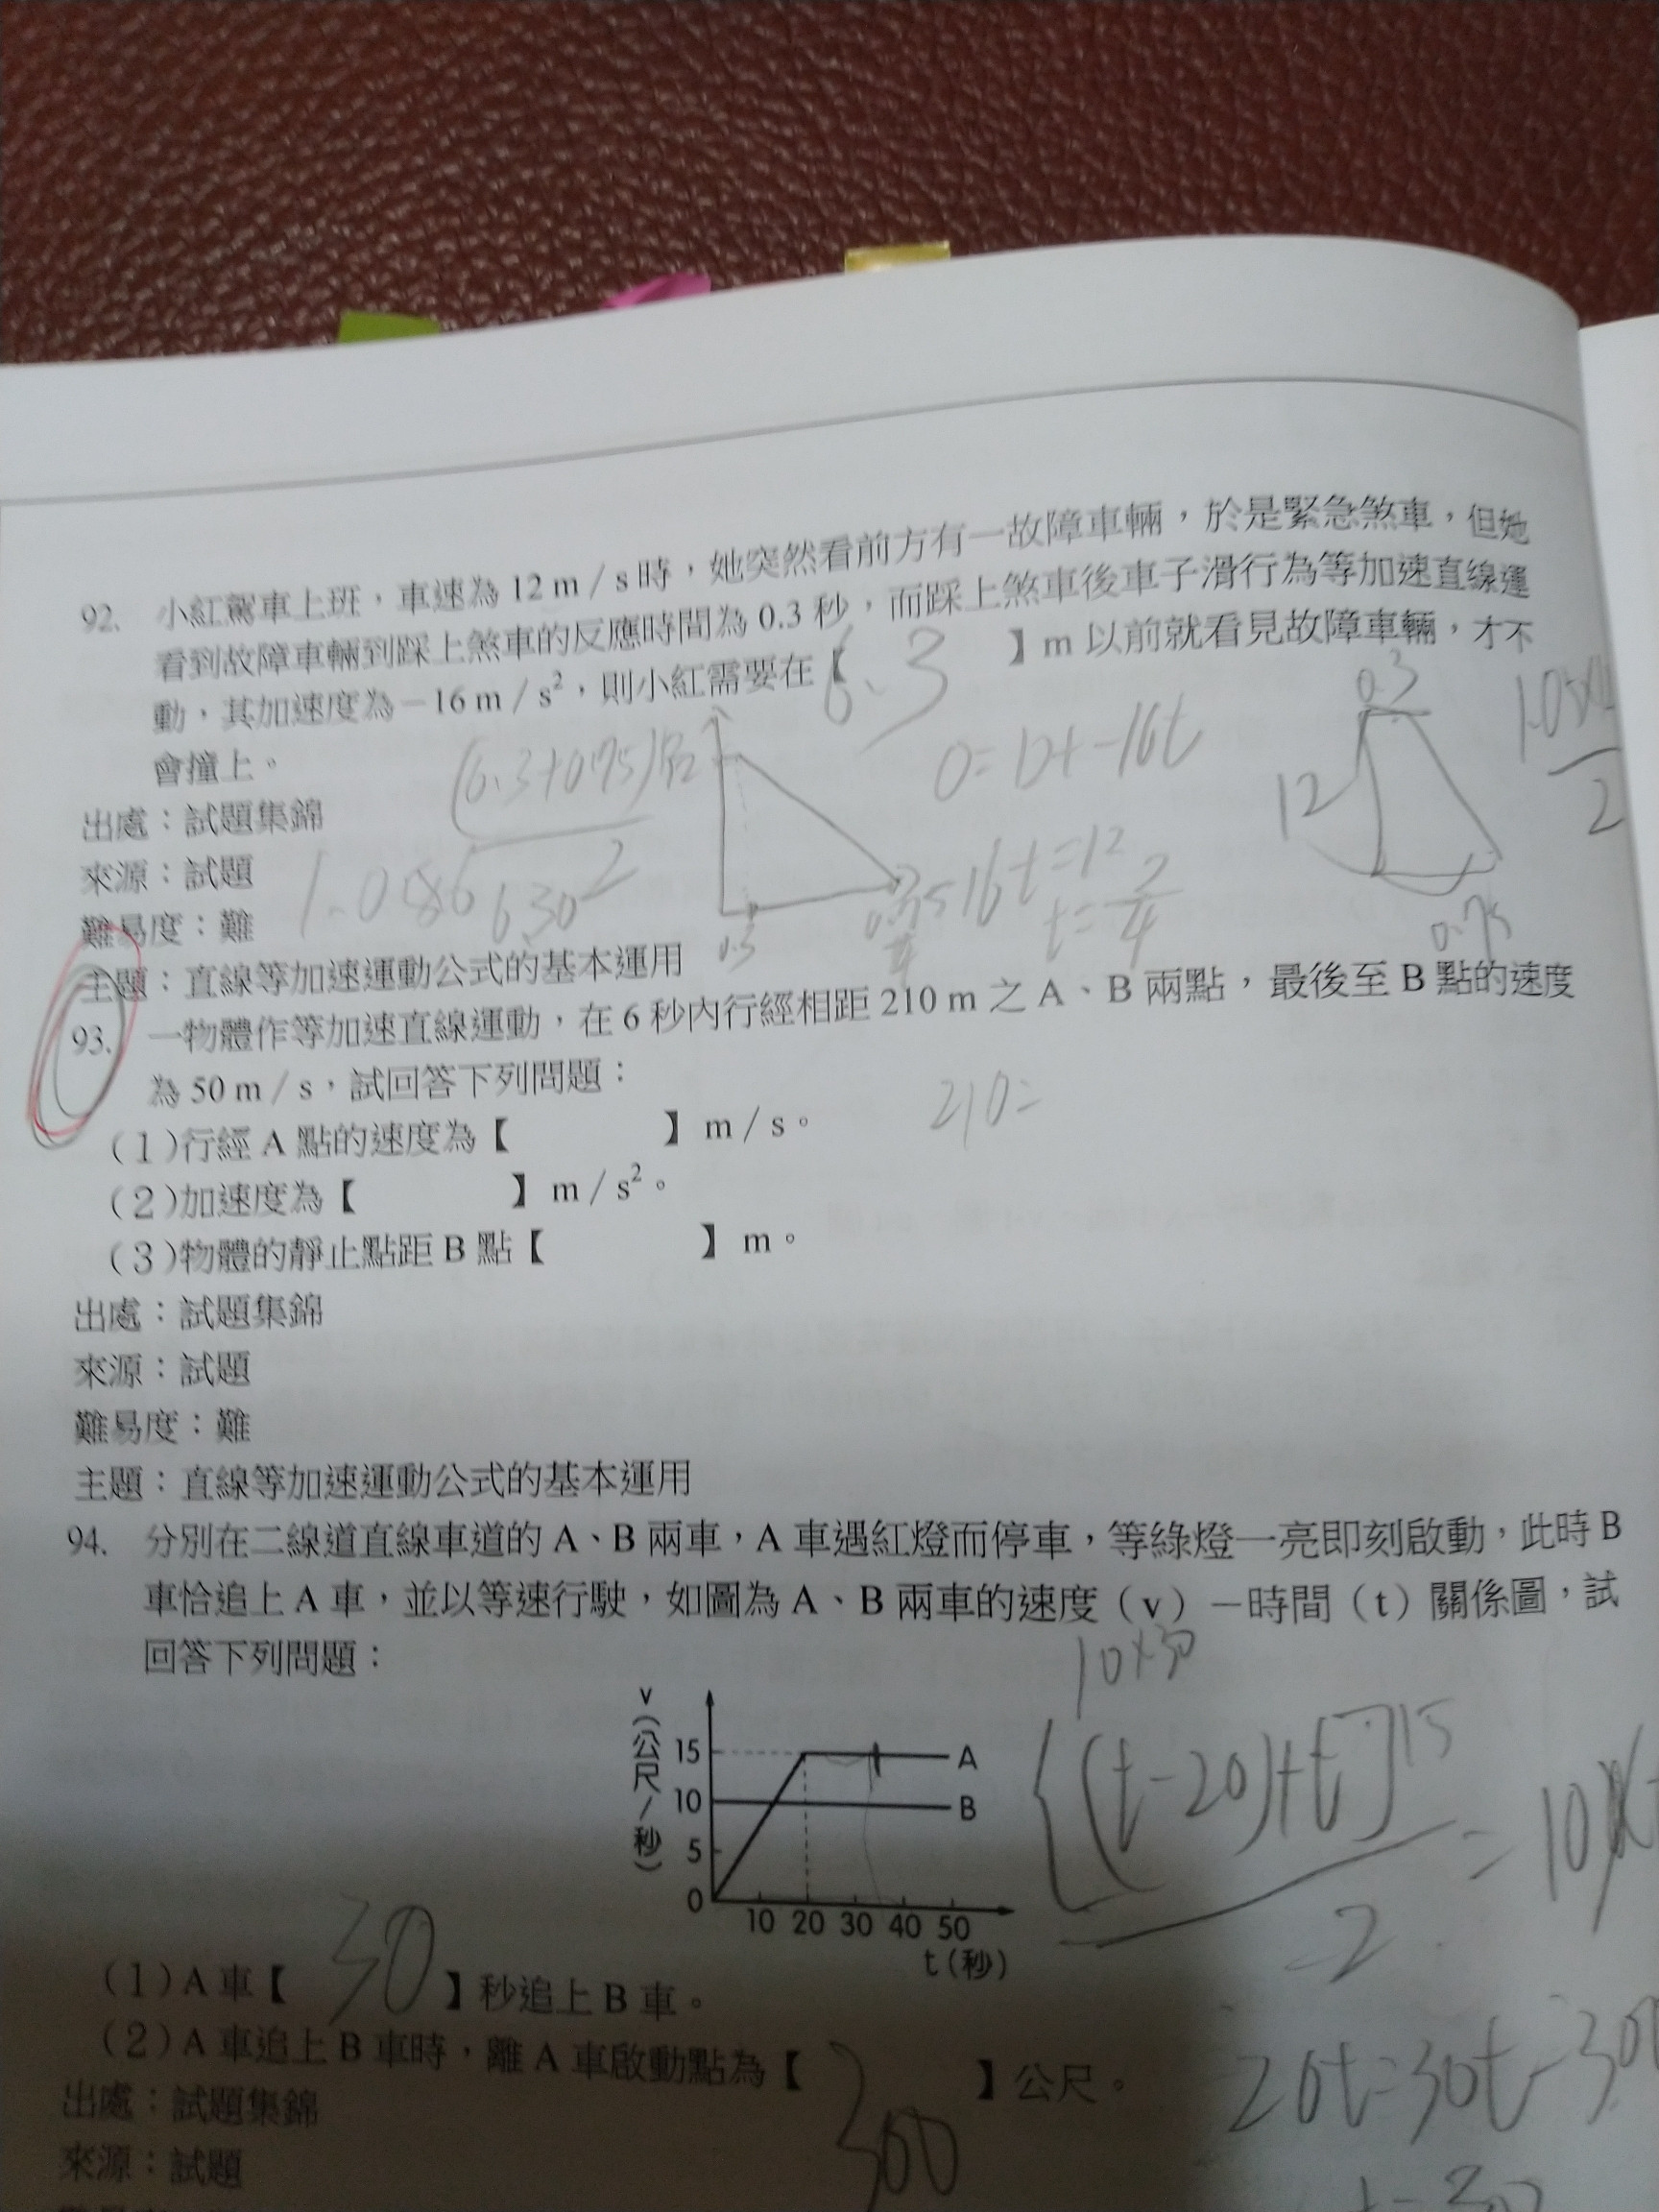 92. 小紅駕車上班，車速為 12 m / s 時，她突然看前方有一故障車輛，於是緊急煞車，但她
看到故障車輛到踩上煞車的反應時間為 0.3 秒，而踩上煞車後車子滑行為等加速直線運
動，其加速度為－16 m / s²，則小紅需要在【 6.3 】m 以前就看見故障車輛，才不
會撞上。
0.3
(6.3+0.75)
2
0=12+-16t
12
2
出處：試題集錦
來源：試題
1.086
630
16t=12
t=
4
0.3
0.75
難易度：難
主題：直線等加速運動公式的基本運用
93. 一物體作等加速直線運動，在 6 秒內行經相距 210 m 之 A、B 兩點，最後至 B 點的速度
為 50 m / s，試回答下列問題：
210=
(1)行經 A 點的速度為【 】m / s。
(2)加速度為【 】m / s²。
(3)物體的靜止點距 B 點【 】m。
出處：試題集錦
來源：試題
難易度：難
主題：直線等加速運動公式的基本運用
94. 分別在二線道直線車道的 A、B 兩車，A 車遇紅燈而停車，等綠燈一亮即刻啟動，此時 B
車恰追上 A 車，並以等速行駛，如圖為 A、B 兩車的速度（v）－時間（t）關係圖，試
回答下列問題：
10×30
v(公尺/秒)
15
A
10
B
5
0
10 20 30 40 50
t(秒)
{(t-20)+t]15
2
=10
(1)A 車【 30 】秒追上 B 車。
(2)A 車追上 B 車時，離 A 車啟動點為【 300 】公尺。
20t=30t-30
出處：試題集錦
來源：試題